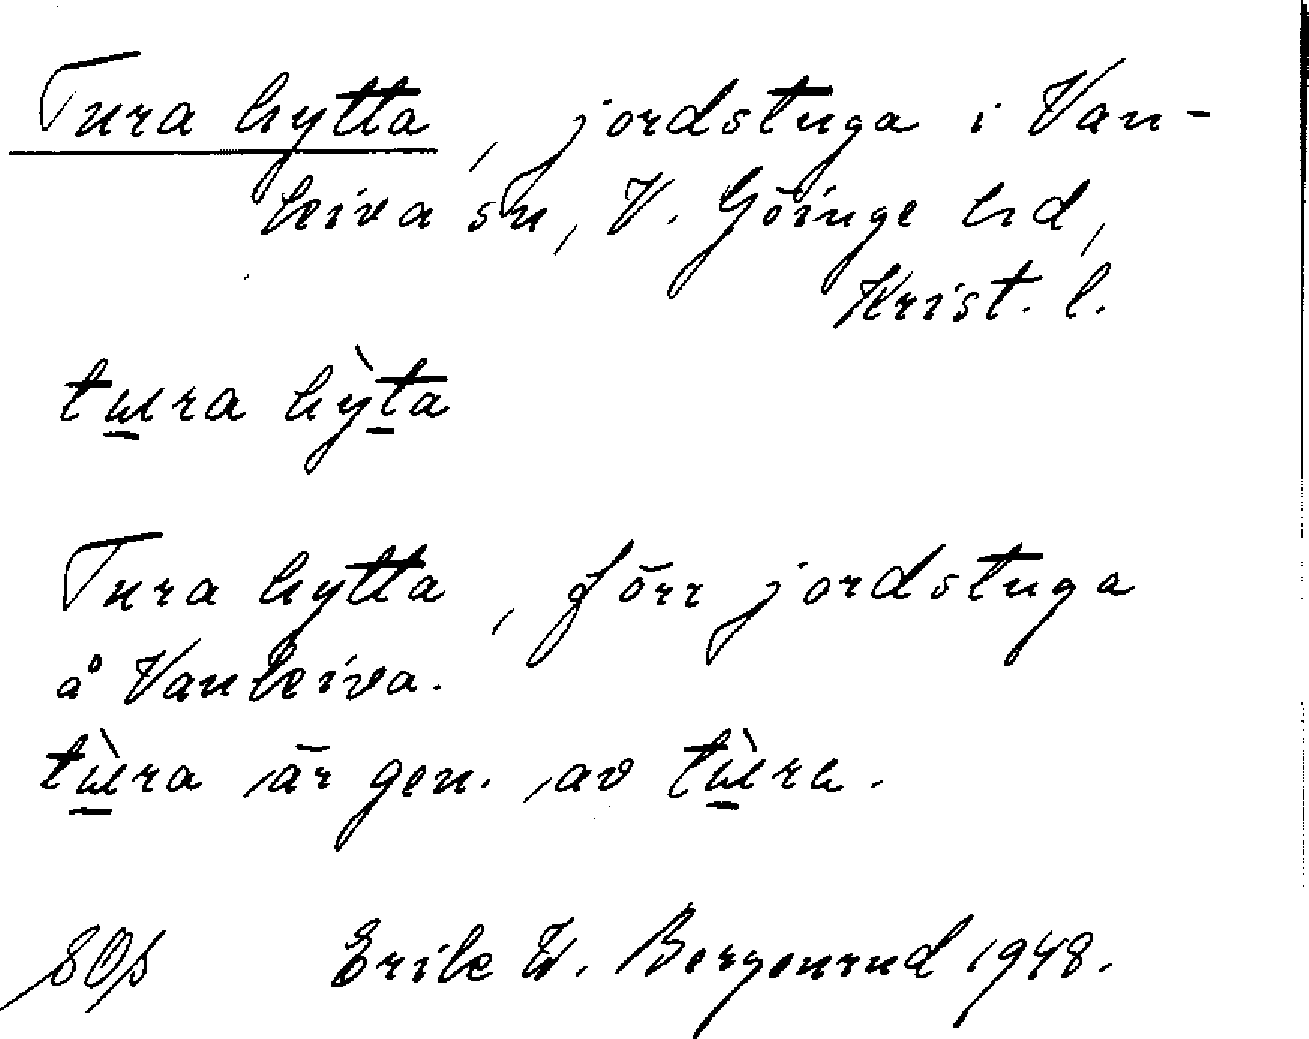 Tura hytta, jordstuga i Van-
keiva sn, V. Göinge hd,
Krist. l.
tɯra hỳta
Tura hytta, förr jordstuga
å Vankeiva.
tɯ̀ra är gen. av tɯ̀re.
Erik W. Bergenrud 1948.